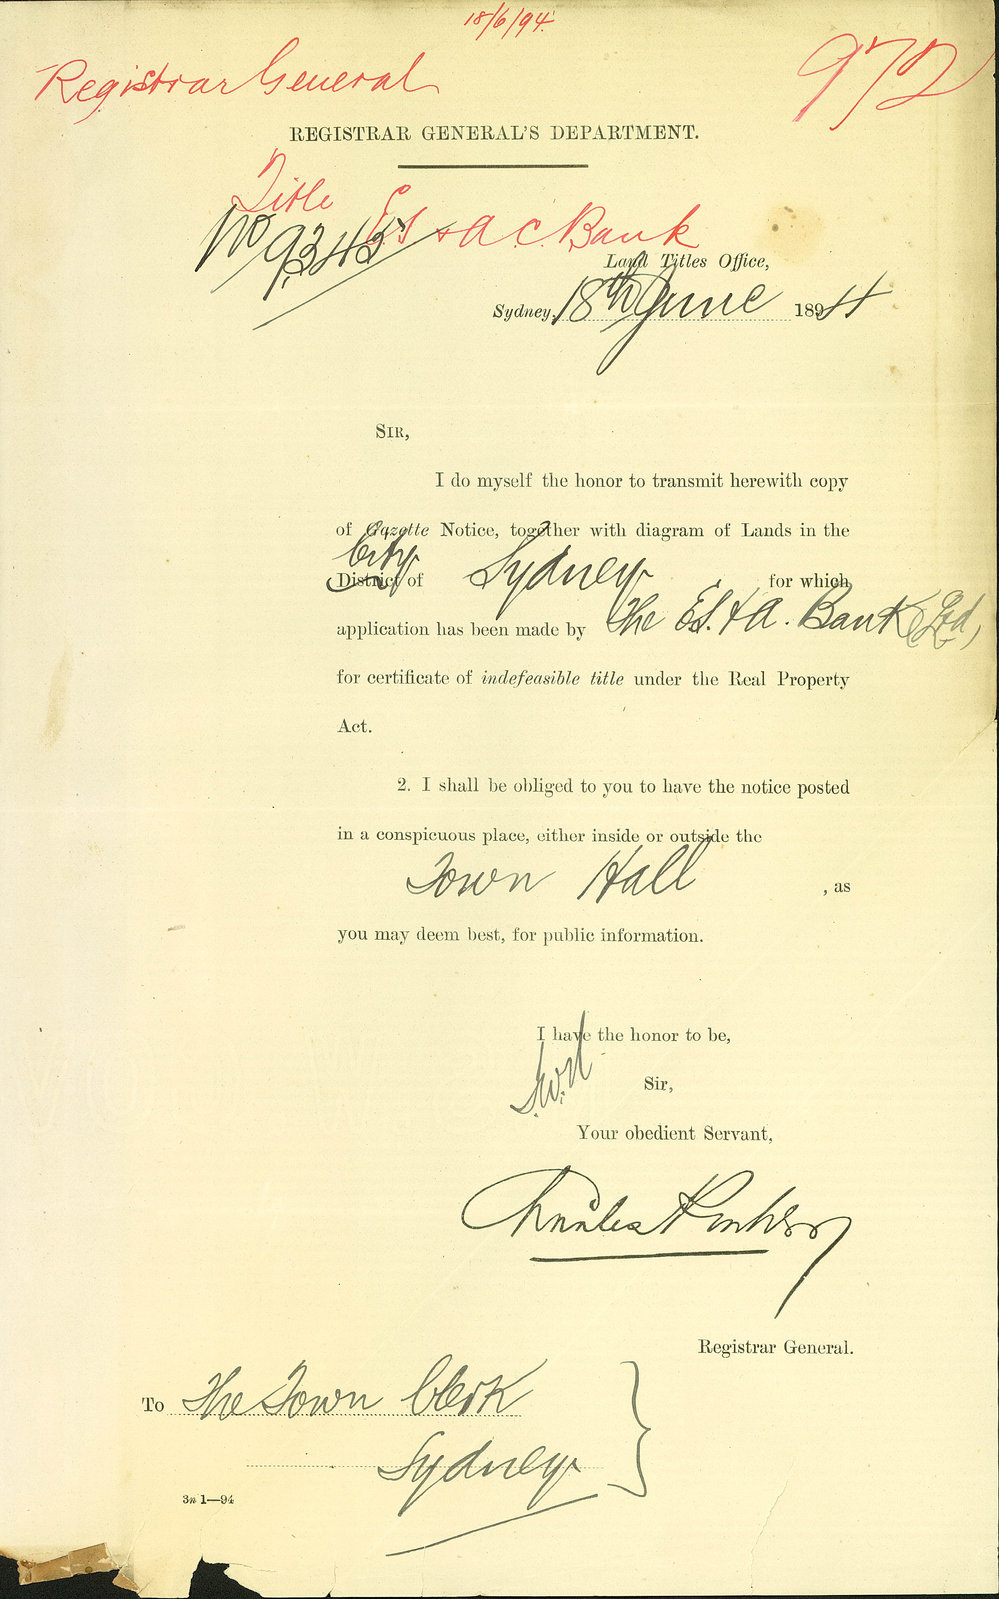 18/6/94.
Registrar General
972
REGISTRAR GENERAL'S DEPARTMENT.
Title E.S & A. C. Bank
No 9345
Land Titles Office,
Sydney, 18th June 1894
SIR,
I do myself the honor to transmit herewith copy
of Gazette Notice, together with diagram of Lands in the
City
District of Sydney for which
application has been made by The E.S. & A. Bank (Ltd)
for certificate of indefeasible title under the Real Property
Act.
2. I shall be obliged to you to have the notice posted
in a conspicuous place, either inside or outside the
Town Hall , as
you may deem best, for public information.
I have the honor to be,
Sir,
Your obedient Servant,
Charles
Registrar General.
To The Town Clerk
Sydney
3n 1—94